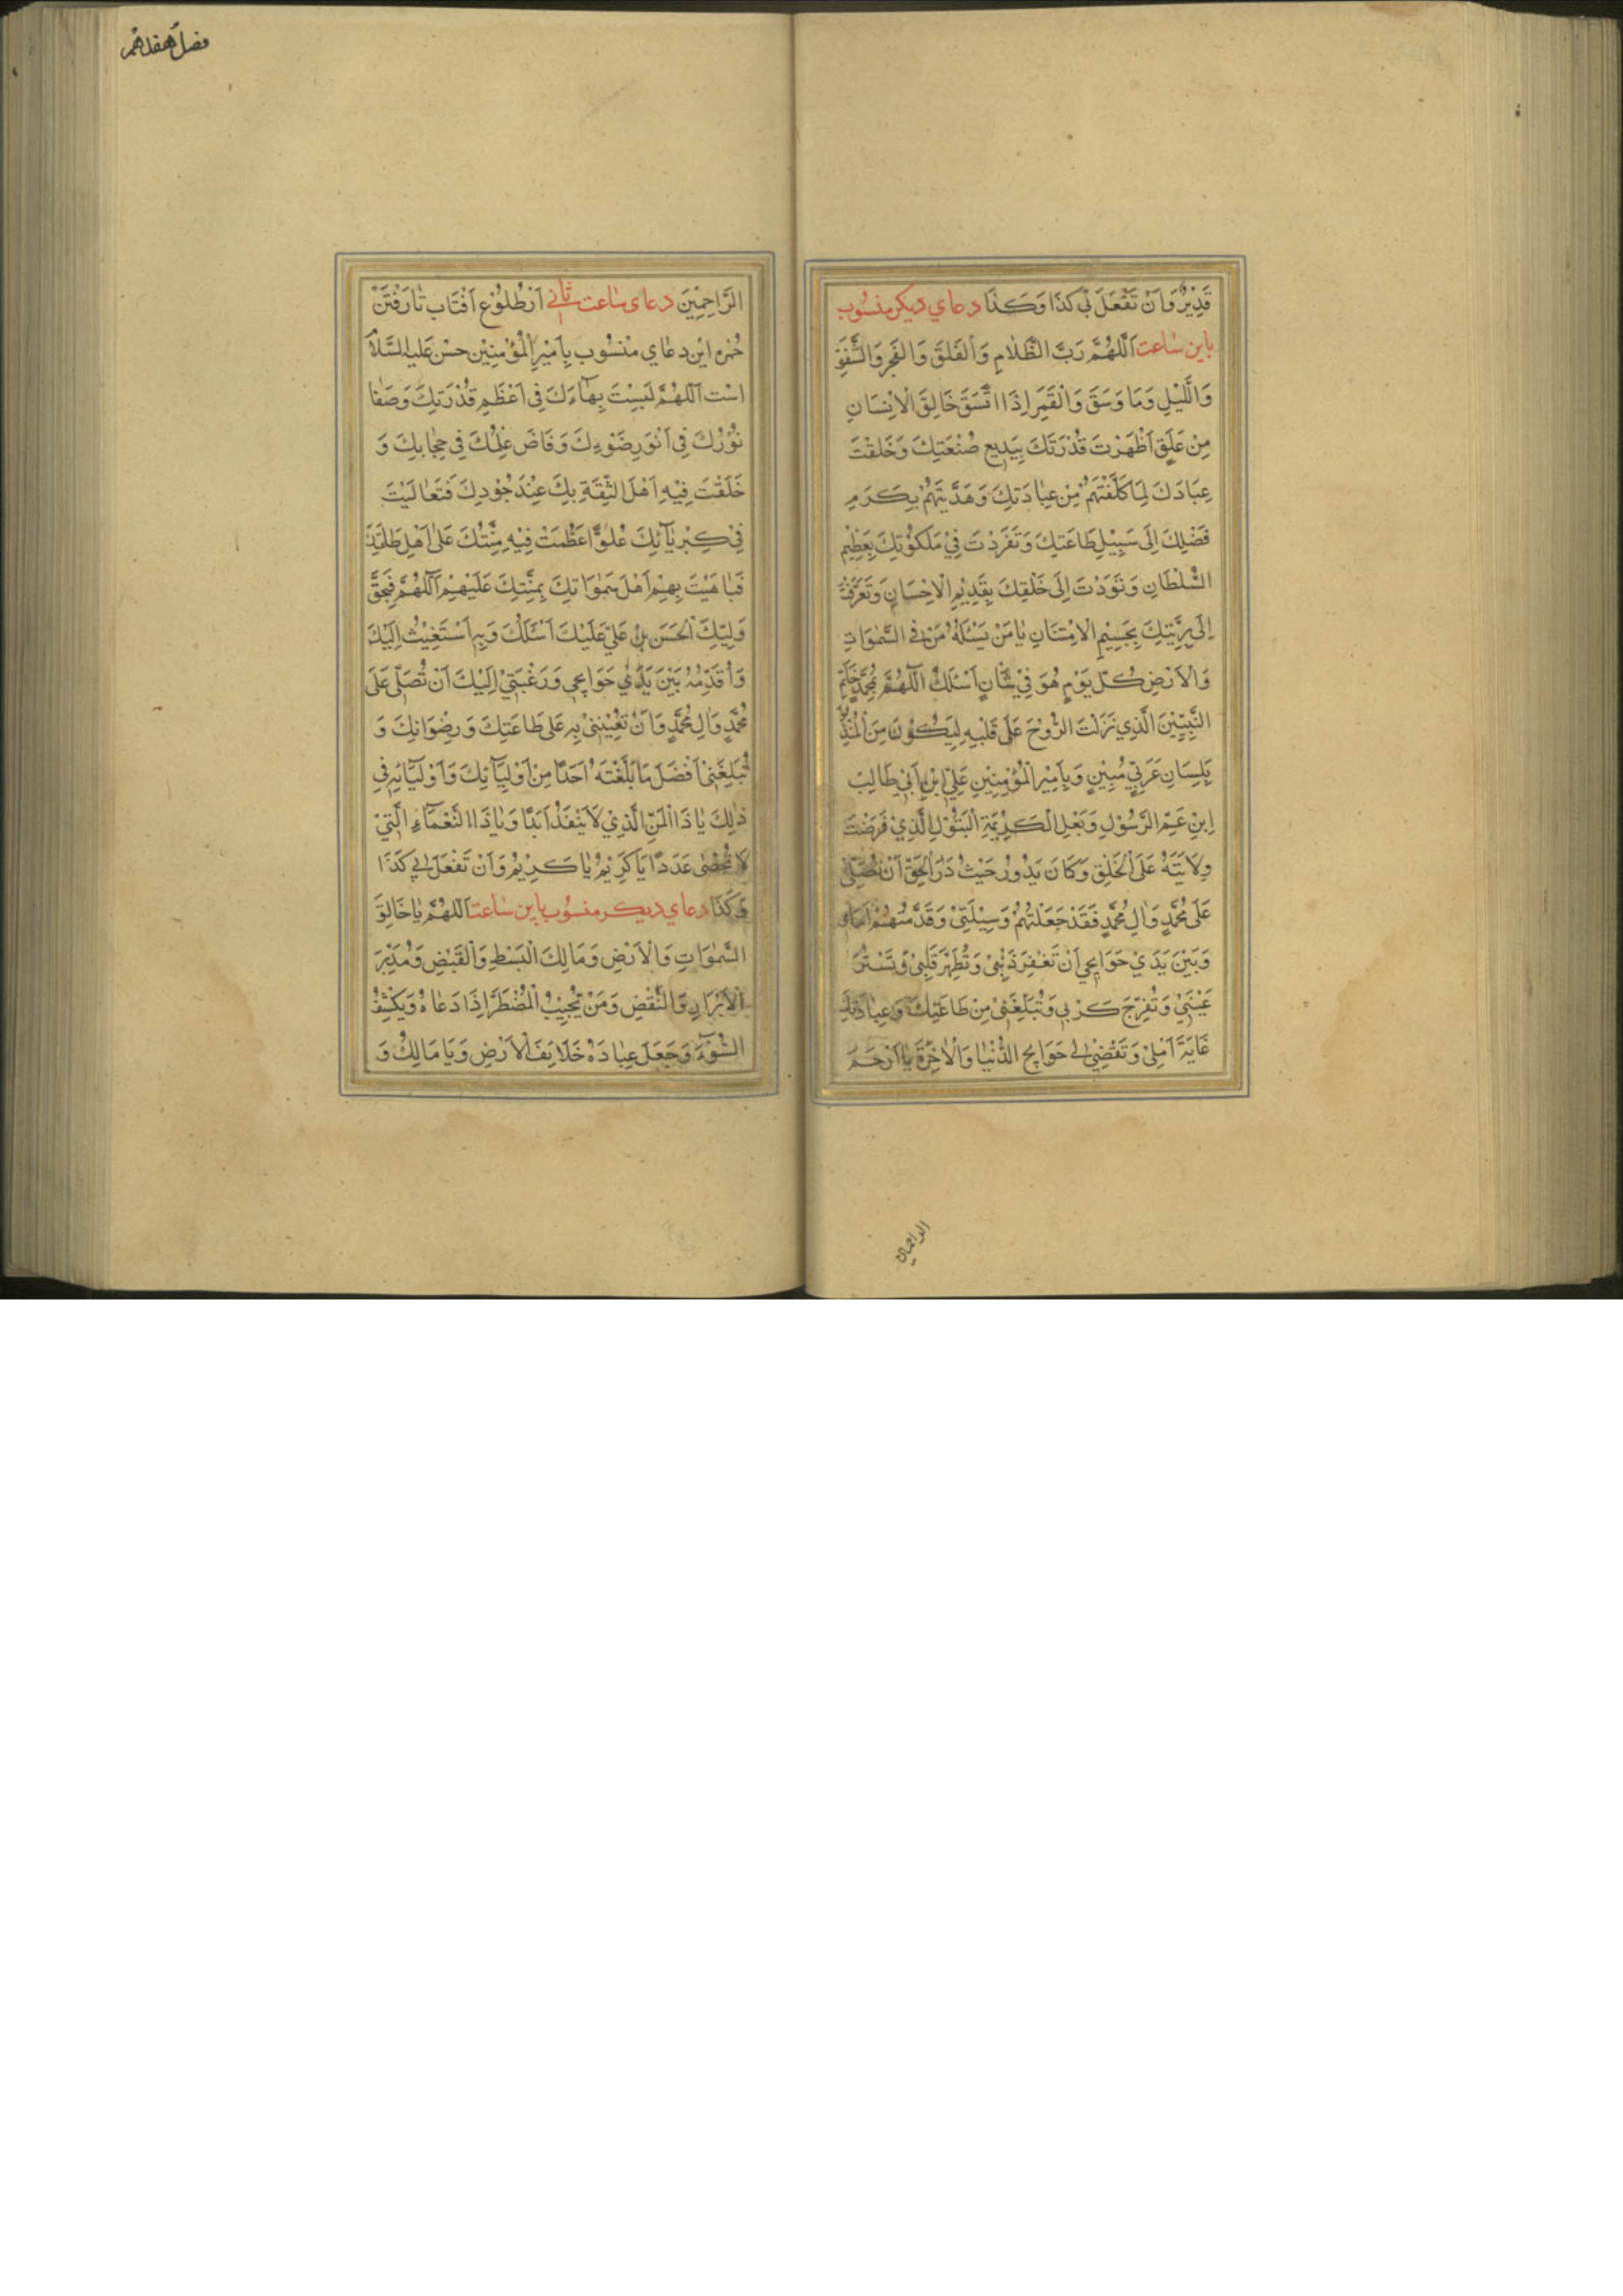 قَدِيْرٌ وَاَنْ تَفْعَلَ بِيْ كَذَا وَكَذَا دعاي ديكر منسُوب
باين ساعت اَللّهُمَّ رَبَّ الظَّلَامِ وَالْفَلَقِ وَالْفَجْرِ وَالشَّفَقِ
وَاللَّيْلِ وَمَا وَسَقَ وَالْقَمَرِ اِذَا اتَّسَقَ خَالِقَ الْاِنْسَانِ
مِنْ عَلَقٍ اَظْهَرْتَ قُدْرَتَكَ بِبَدِيعِ صُنْعَتِكَ وَخَلَقْتَ
عِبَادَكَ لِمَا كَلَّفْتَهُمْ مِنْ عِبَادَتِكَ وَهَدَيْتَهُمْ بِكَرَمِ
فَضْلِكَ اِلَى سَبِيْلِ طَاعَتِكَ وَتَفَرَدْتَ فِيْ مَلَكُوْتِكَ بِعَظِيْمِ
السُّلْطَانِ وَتَوَدْتَ اِلَى خَلْقِكَ بِقَدِيْمِ الْاِحْسَانِ وَتَعَرَّفْتَ
اِلَى بَرِيَّتِكَ بِجَسِيْمِ الْاِمْتِنَانِ يَا مَنْ يَسْئَلُهُ مَنْ فِى السَّمٰوَاتِ
وَالْاَرْضِ كُلَّ يَوْمٍ هُوَ فِيْ شَانٍ اَسْئَلُكَ اَللّهُمَّ بِمُحَمَّدٍ خَاتَمِ
النَّبِيّيْنَ الَّذِي نَزَلْتَ الرُّوْحَ عَلَى قَلْبِهِ لِيَكُوْنَ مِنَ الْمُنْذِ
بِلِسَانٍ عَرَبِيٍّ مُبِيْنٍ وَبِاَمِيْرِ الْمُؤْمِنِيْنِ عَلِيّ ابْنِ اَبِيْ طَالِبْ
اِبْنِ عَمِّ الرَّسُوْلِ وَبَعْلِ الْكَرِيْمَةِ الْبَتُوْلِ الَّذِيْ فَرَضْتَ
وِلَايَتَهُ عَلَى الْخَلْقِ وَكَانَ يَدُوْرُ حَيْثُ دَرَ الْحَقّ اَنْ تُصَلِّىَ
عَلَى مُحَمَّدٍ وَاٰلِ مُحَمَّدٍ فَقَدْ جَعَلْتُهُمْ وَسِيْلَتِىْ وَقَدَّمْتُهُمْ اَمَامِى
وَبَيْنَ يَدَيْ حَوَايِجِي اَنْ تَغْفِرَ ذَنْبِىْ وَتُطَهِّرَ قَلْبِىْ وَتَسْتُرَ
عَيْبَىْ وَتُفَرِّجَ كَرْبِي وَتُبَلِّغَنِىْ مِنْ طَاعَتِكَ وَعِبَادَتِكَ
غَايَةَ اَمَلِىْ وَتَقْضِىَ لِي حَوَايِجِ الدُّنْيَا وَالْاٰخِرَةِ يَا اَرْحَمَ
الراحمين
فصل هفدهم
الرَّاحِمِيْنَ دعاى ساعت ثانى اَزْ طُلُوْعِ اَفْتَاب تَا رَفْتَنْ
حُمْرِه اين دعاي مَنْسُوب بِاَمِيْرِالْمُؤْمِنِيْن حسن عليه السَّلَا
است اَللّهُمَّ لَبِسْتَ بِهَاءَكَ فِى اَعْظَمِ قُدْرَتِكَ وَصَفَا
نُوْرُكَ فِى اَنْوَرِ ضَوْءِكَ وَفَاضَ عِلْمُكَ فِى حِجَابِكَ وَ
خَلَقْتَ فِيْهِ اَهْلَ الثِّقَةِ بِكَ عِنْدَ جُوْدِكَ فَتَعَالَيْتَ
فِىْ كِبْرِيَآئِكَ عُلُوًّا عَظُمَتْ فِيْهِ مِنَّتُكَ عَلى اَهْلِ طَاعَتِكَ
فَبَاهَيْتَ بِهِمْ اَهْلَ سَمٰوَاتِكَ بِمِنَّتِكَ عَلَيْهِمْ اَللّهُمَّ فَبِحَقِّ
وَلِيّكَ الْحَسَنِ بْنِ عَلىٍ عَلَيْكَ اَسْئَلُكَ وَبِهِ اَسْتَغِيْثُ اِلَيْكَ
وَاُقَدِّمُهُ بَيْنَ يَدَيْ حَوَايِجِى وَرَغْبَتِيْ اِلَيْكَ اَنْ تُصَلِّى عَلَى
مُحَمَّدٍ وَاٰلِ مُحَمَّدٍ وَاَنْ تُعِيْنَنِىْ بِهِ عَلى طَاعَتِكَ وَرِضْوَانِكَ وَ
تُبَلِّغَنِىْ اَفْضَلَ مَا بَلَّغْتَهُ اَحَدًا مِنْ اَوْلِيَآئِكَ وَاَوْلِيَائِهِ فِى
ذٰلِكَ يَا ذَا الْمَنّ الَّذِيْ لَا يَنْفَدُ اَبَدًا وَيَا ذَا النَّعْمَآءِ الَّتِيْ
لَا تُحْصٰى عَدَدًا يَا كَرِيْمُ يَا كَرِيْمُ وَاَنْ تَفْعَلَ لِي كَذَا
وَكَذَا دعاي ديكر منسُوب باين ساعت اَللّهُمَّ يَا خَالِقَ
السَّمٰوَاتِ وَالْاَرْضِ وَمَالِكَ الْبَسْطِ وَالْقَبْضِ وَمُدَبِّرَ
الْاَبْرَامِ وَالنَّقْضِ وَمَنْ يُجِيْبُ الْمُضْطَرَّ اِذَا دَعَاهُ وَيَكْشِفُ
السُّوْءَ وَجَعَلَ عِبَادَهُ خَلَايِفَ الْاَرْضِ وَيَا مَالِكُ وَ